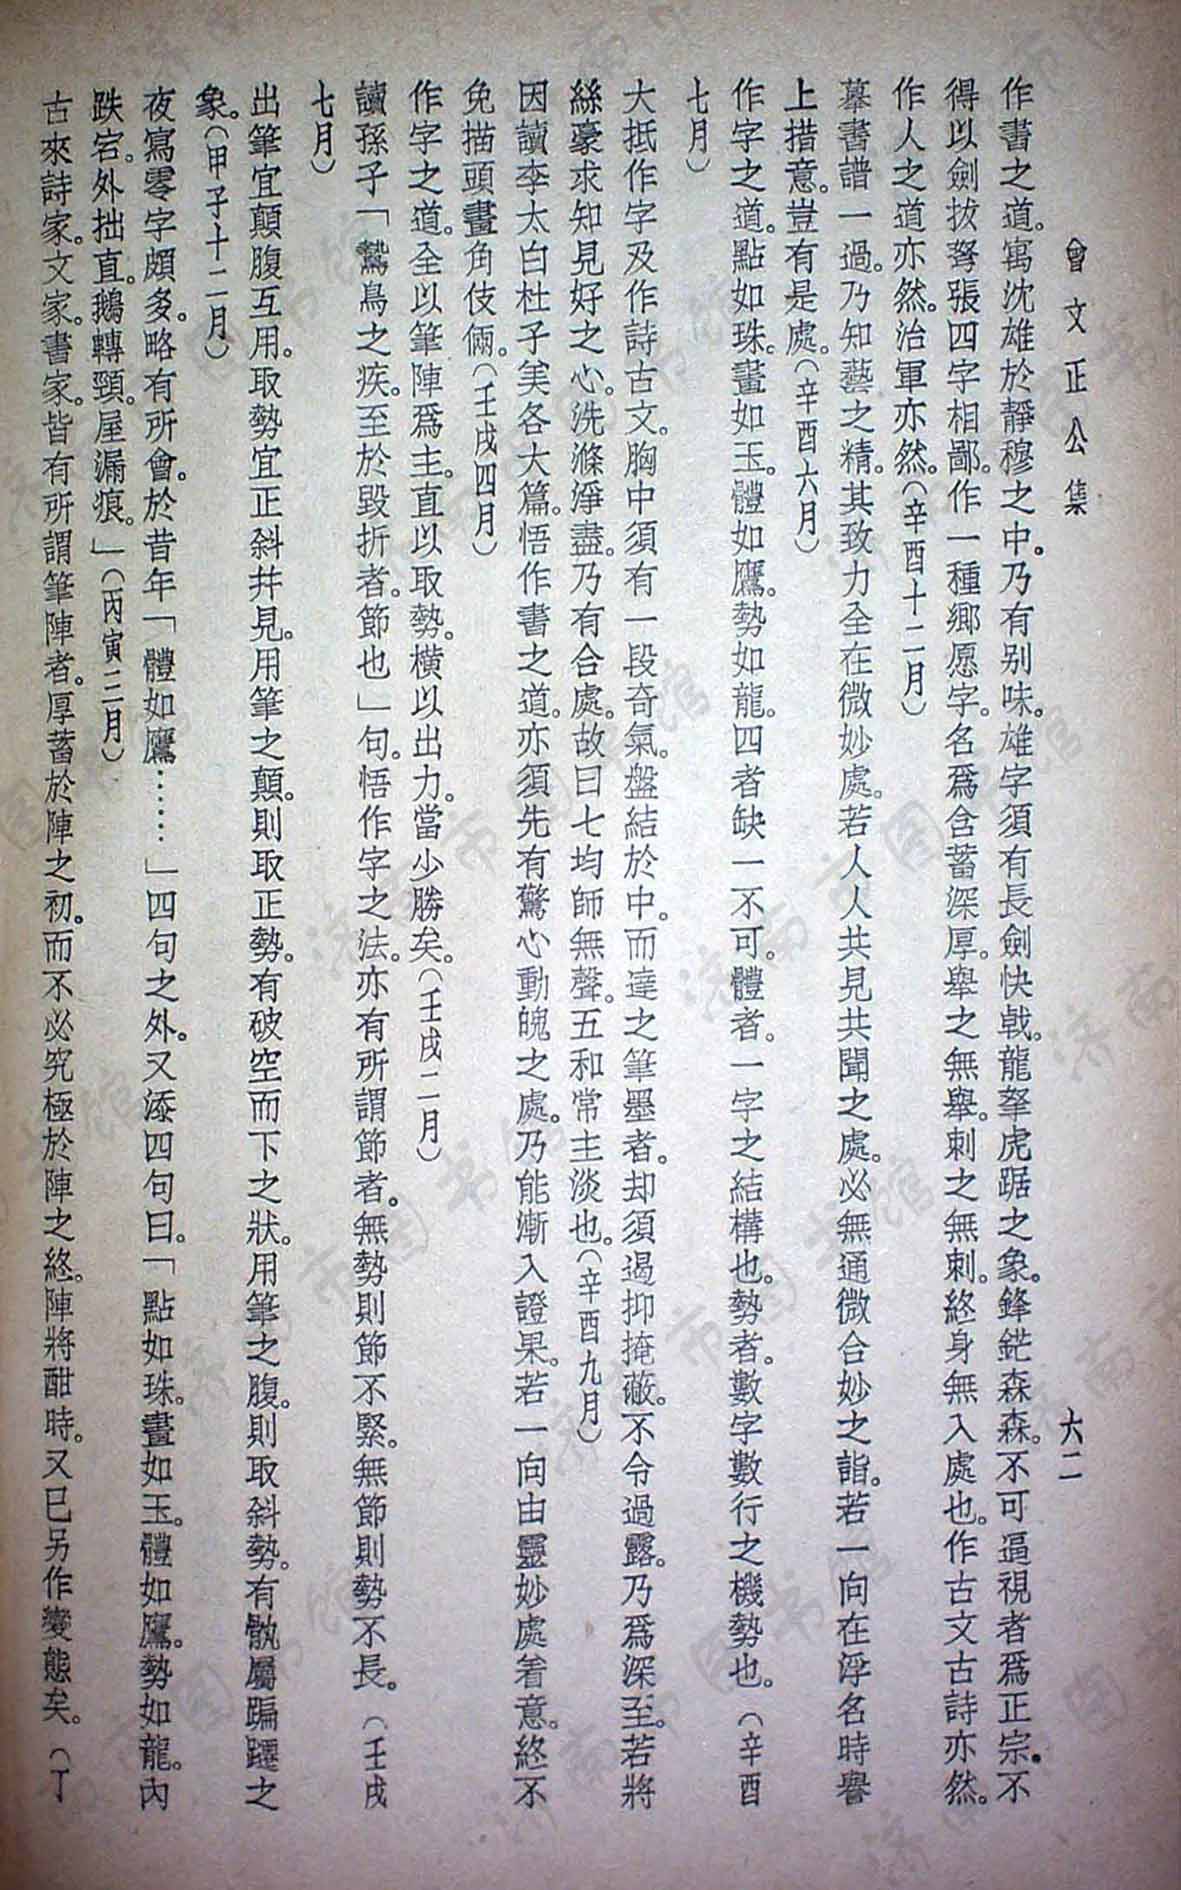 曾文正公集　六二
作書之道。寓沈雄於靜穆之中。乃有别味。雄字須有長劍快戟。龍拏虎踞之象。鋒鋩森森。不可逼視者爲正宗。不
得以劍拔弩張四字相鄙。作一種鄉愿字。名爲含蓄深厚。舉之無舉。刺之無刺。終身無入處也。作古文古詩亦然。
作人之道亦然。治軍亦然。（辛酉十二月）
摹書譜一過。乃知藝之精。其致力全在微妙處。若人人共見共聞之處。必無通微合妙之詣。若一向在浮名時譽
上措意。豈有是處。（辛酉六月）
作字之道。點如珠。畫如玉。體如鷹。勢如龍。四者缺一不可。體者。一字之結構也。勢者。數字數行之機勢也。（辛酉
七月）
大抵作字及作詩古文。胸中須有一段奇氣。盤結於中。而達之筆墨者。却須遏抑掩蔽。不令過露。乃爲深至。若將
絲豪求知見好之心。洗滌淨盡。乃有合處。故曰七均師無聲。五和常主淡也。（辛酉九月）
因讀李太白杜子美各大篇。悟作書之道。亦須先有驚心動魄之處。乃能漸入證果。若一向由靈妙處着意。終不
免描頭畫角伎倆。（壬戌四月）
作字之道。全以筆陣爲主。直以取勢。横以出力。當少勝矣。（壬戌二月）
讀孫子「鷙鳥之疾。至於毀折者。節也」句。悟作字之法。亦有所謂節者。無勢則節不緊。無節則勢不長。（壬戌
七月）
出筆宜顛腹互用。取勢宜正斜并見。用筆之顛。則取正勢。有破空而下之狀。用筆之腹。則取斜勢。有骫屬蹁躚之
象。（甲子十二月）
夜寫零字頗多。略有所會。於昔年「體如鷹……」四句之外。又添四句曰。「點如珠。畫如玉。體如鷹。勢如龍。內
跌宕。外拙直。鵝轉頸。屋漏痕。」（丙寅二月）
古來詩家。文家。書家。皆有所謂筆陣者。厚蓄於陣之初。而不必究極於陣之終。陣將酣時。又已另作變態矣。（丁